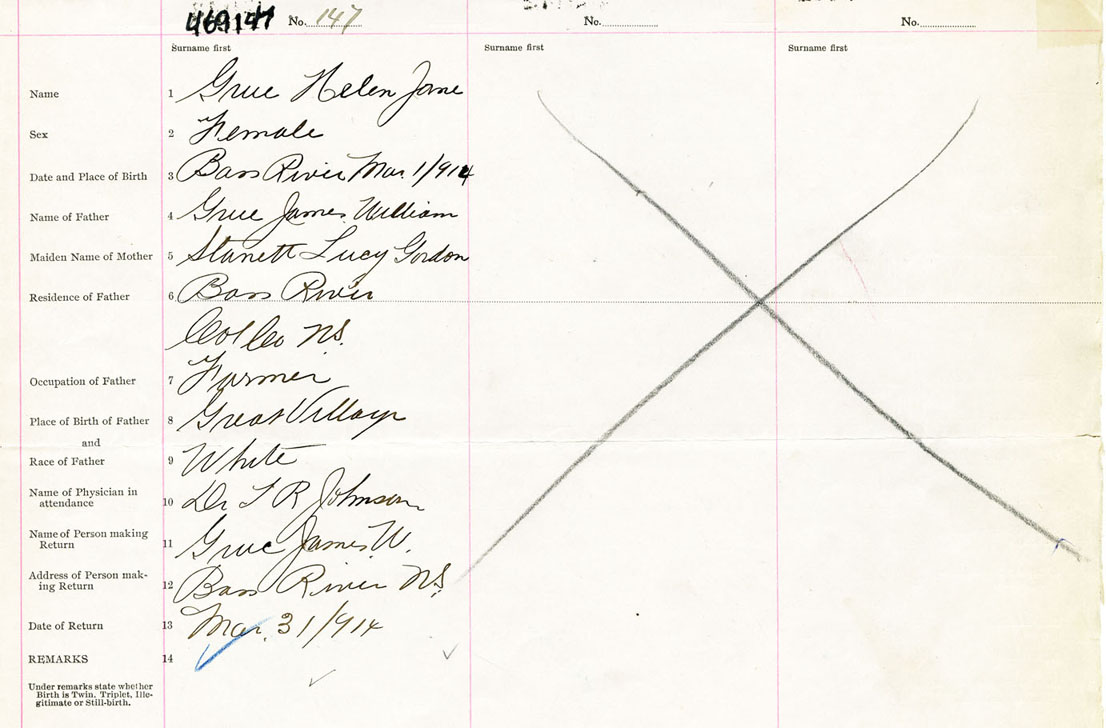 469147 No. 147 No. No.
Surname first Surname first Surname first
Name 1 Grue Helen Jane
Sex 2 Female
Date and Place of Birth 3 Bass River Mar. 1/914
Name of Father 4 Grue James William
Maiden Name of Mother 5 Lucy Gordon
Residence of Father 6 Bass River
Col Co NS.
Occupation of Father 7 Farmer
Place of Birth of Father 8 Great Village
and
Race of Father 9 White
Name of Physician in
attendance 10 Dr T R Johnson
Name of Person making
Return 11 Grue James W.
Address of Person mak-
ing Return 12 Bass River NS.
Date of Return 13 Mar. 31/914
REMARKS 14
Under remarks state whether
Birth is Twin. Triplet, Ille-
gitimate or Still-birth.